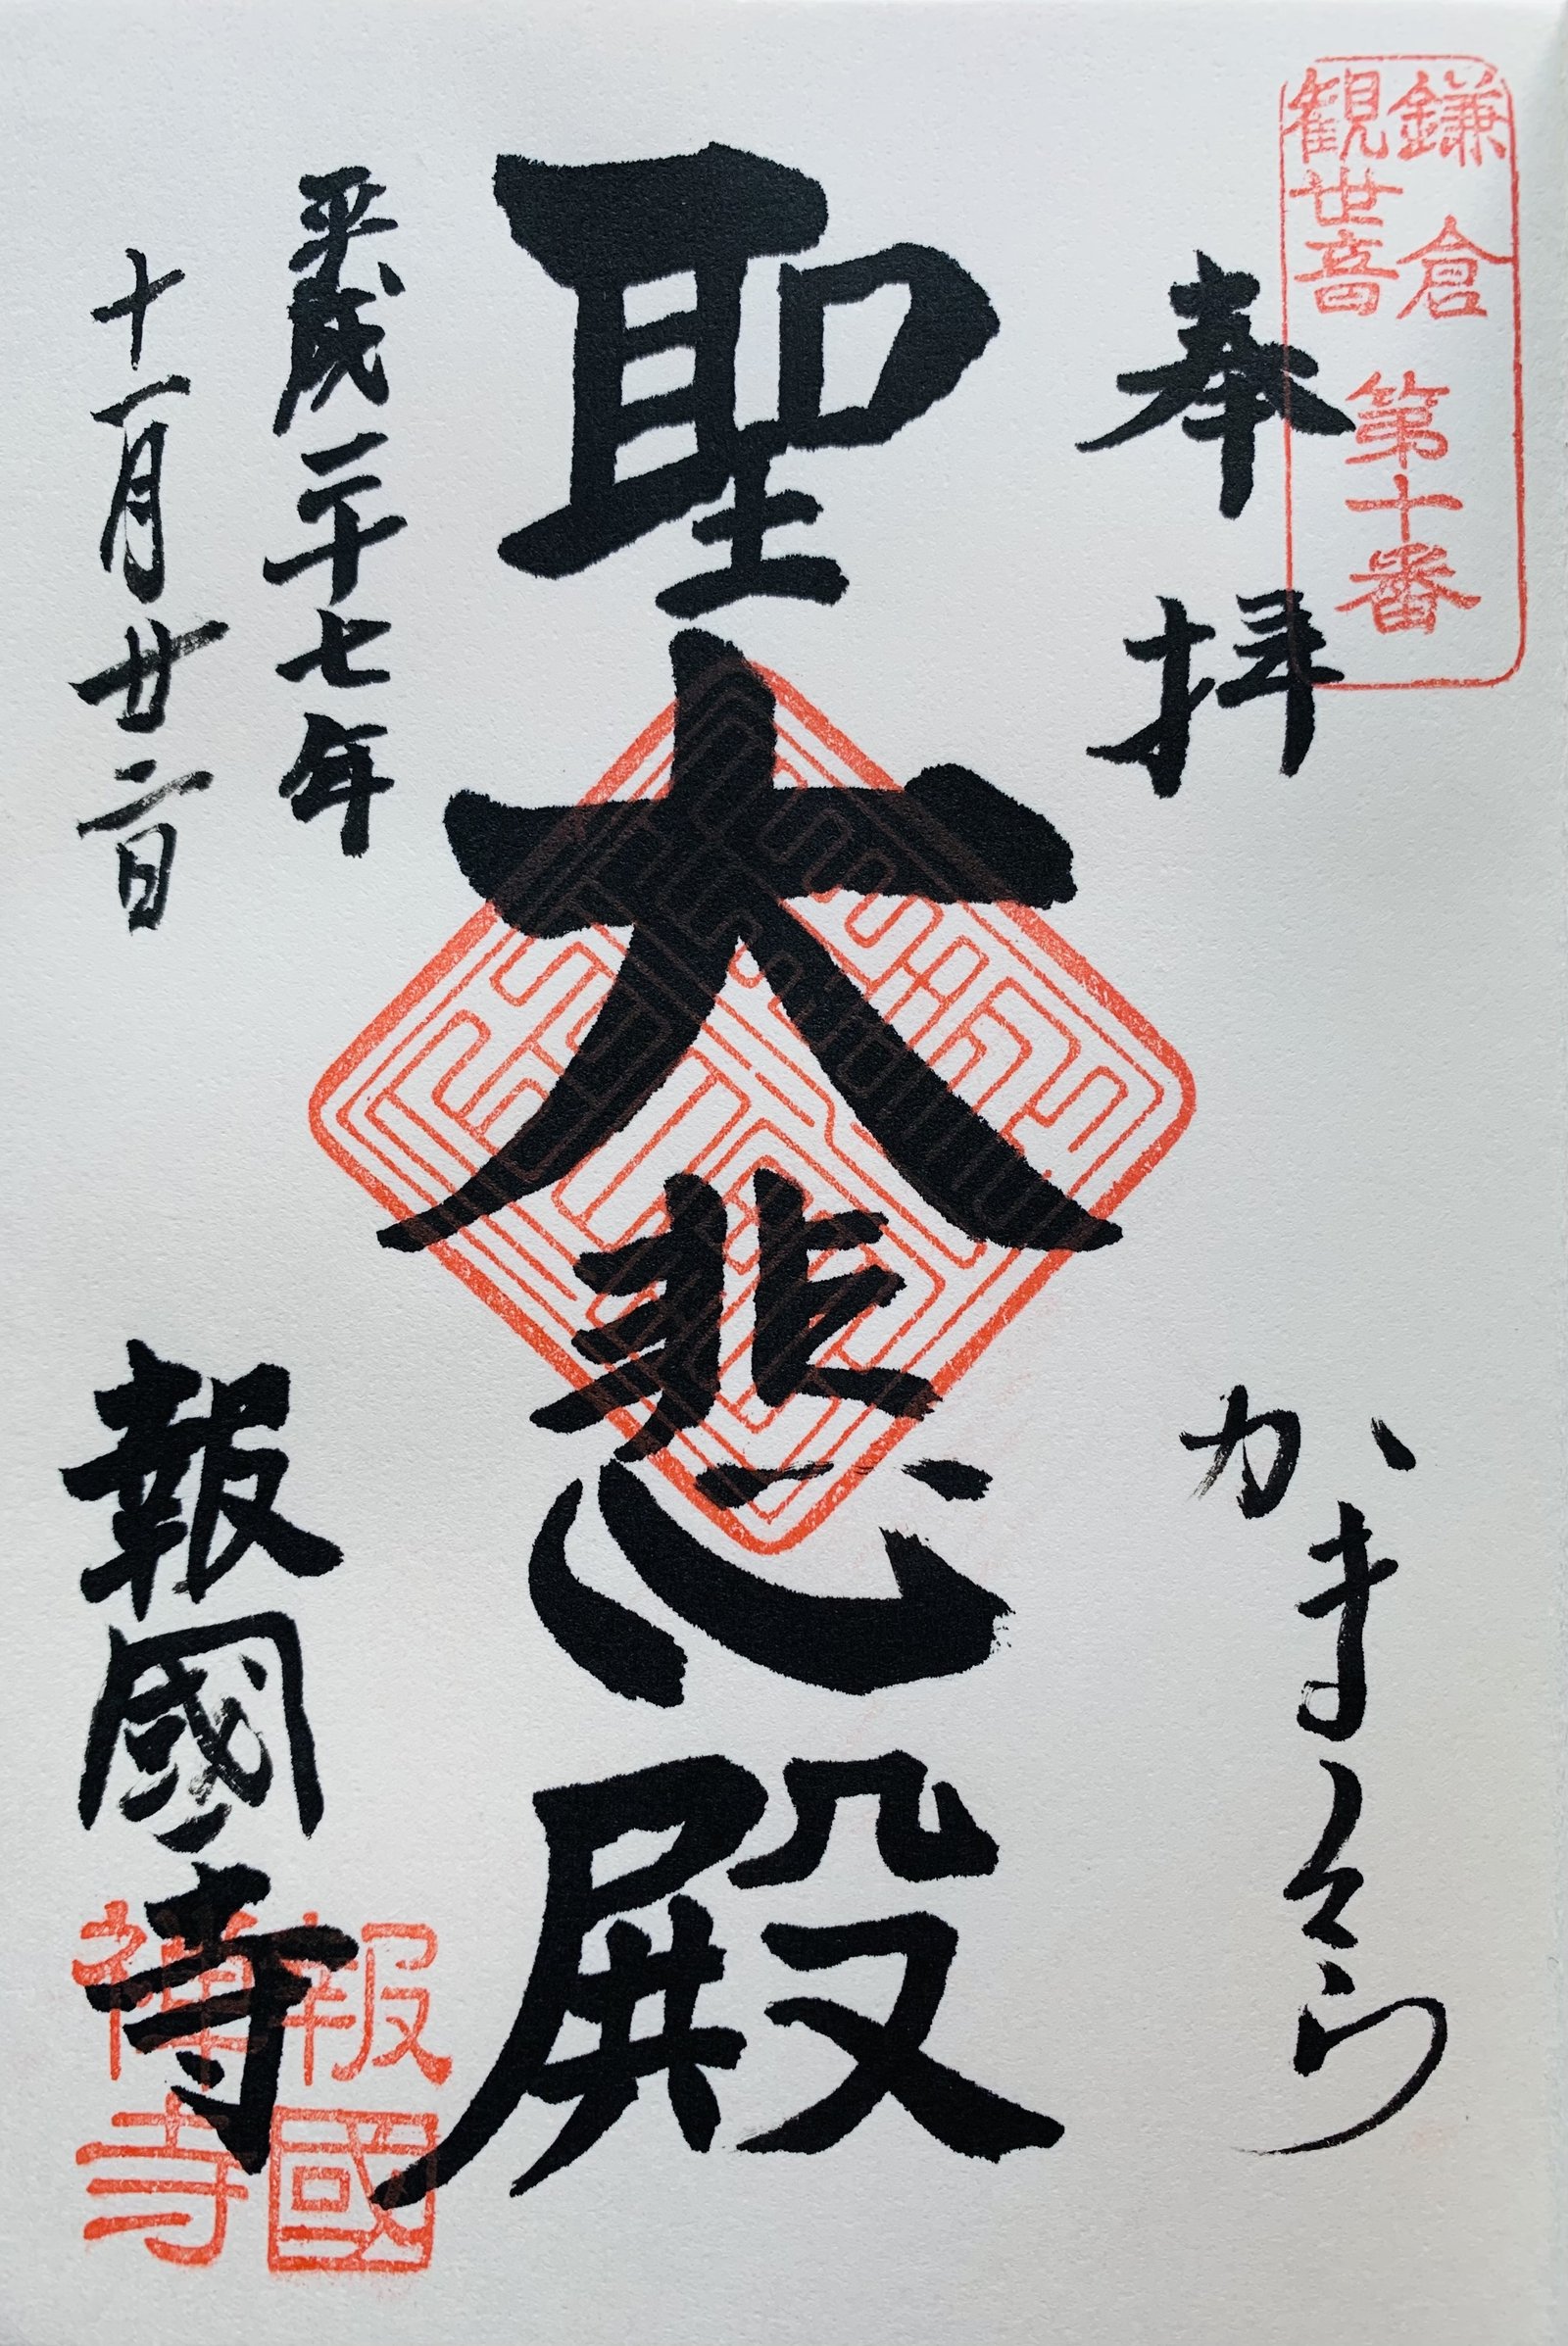 鎌倉
観世音
第十番
奉拝
かまくら
聖大悲殿
平成二十七年
十一月廿二日
報國寺
報國
禅寺